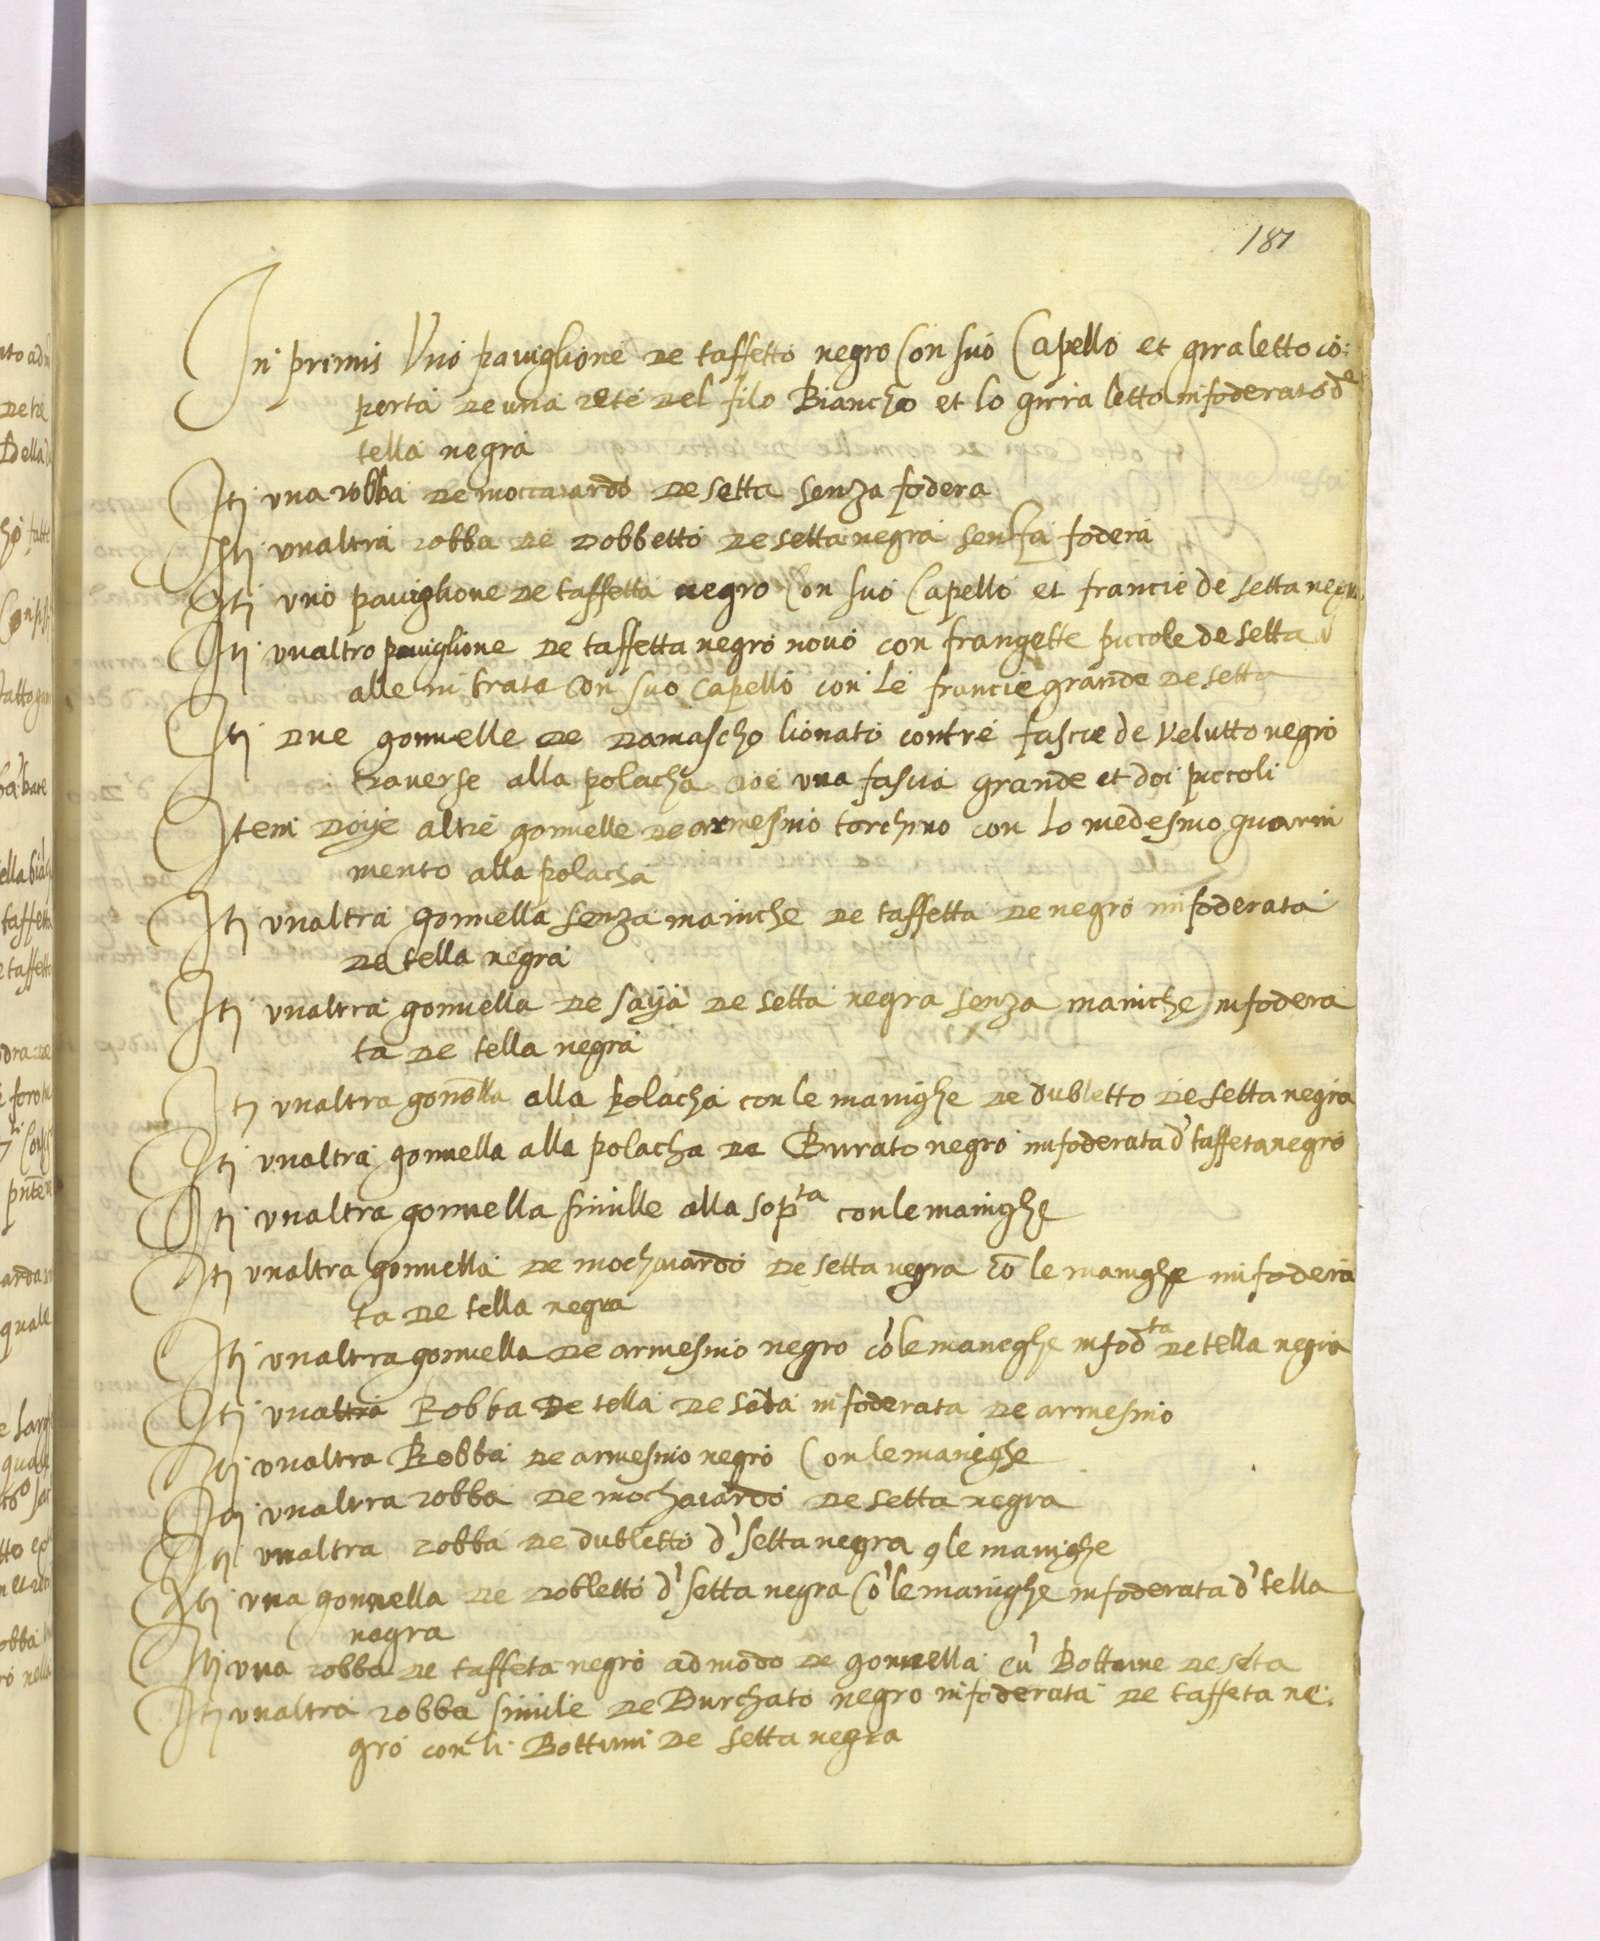 187
In primis Uno paviglione de taffetto negro Con suo Capello et giraletto co:
perta de una rete del filo Biancho et lo girra letto infoderato de
tella negra
Iti una robba de moccaiardo de setta senza fodera
Iti unaltra robba de dobbetto de setta negra senza fodera
Iti uno paviglione de taffetta negro Con suo Capello et francie de setta negra
Iti unaltro paviglione de taffetta negro novo con frangette piccole de setta
alle intrata Con suo capello con le francie grande de setta
Iti due gonnelle de damascho lionato con tre fascie de velutto negro
traverse alla polacha cioe una fascia grande et doi piccoli
Item doije altre gonnelle de armesino torchino con lo medesmo guarni
mento alla polacha
Iti unaltra gonnella senza maniche de taffetta de negro infoderata
de tella negra
Iti unaltra gonnella de saija de setta negra senza maniche infodera
ta de tella negra
Iti unaltra gonella alla polacha con le manighe de dubletto de setta negra
Iti unaltra gonnella alla polacha de Burato negro infoderata d' taffeta negro
Iti unaltra gonnella simille alla sop.ta con le manighe
Iti unaltra gonnella de mochaiardo de setta negra cō le manighe infodera
ta de tella negra
Iti unaltra gonnella de armesino negro cō le maneghe infod.ta de tella negra
Iti unaltra Robba de tella de seda infoderata de armesino
Iti unaltra Robba de armesino negro Con le maneghe
Iti unaltra robba de mochaiardo de setta negra
Iti unaltra robba de dubletto d' setta negra 9 le manighe
Iti una gonnella de dobletto d' setta negra Cō le manighe infoderata d' tella
negra
Iti una robba de taffeta negro ad modo de gonnella cū Bottune de seta
Iti unaltra robba simile de Burchato negro infoderata de taffeta ne:
gro con li Bottuni de setta negra